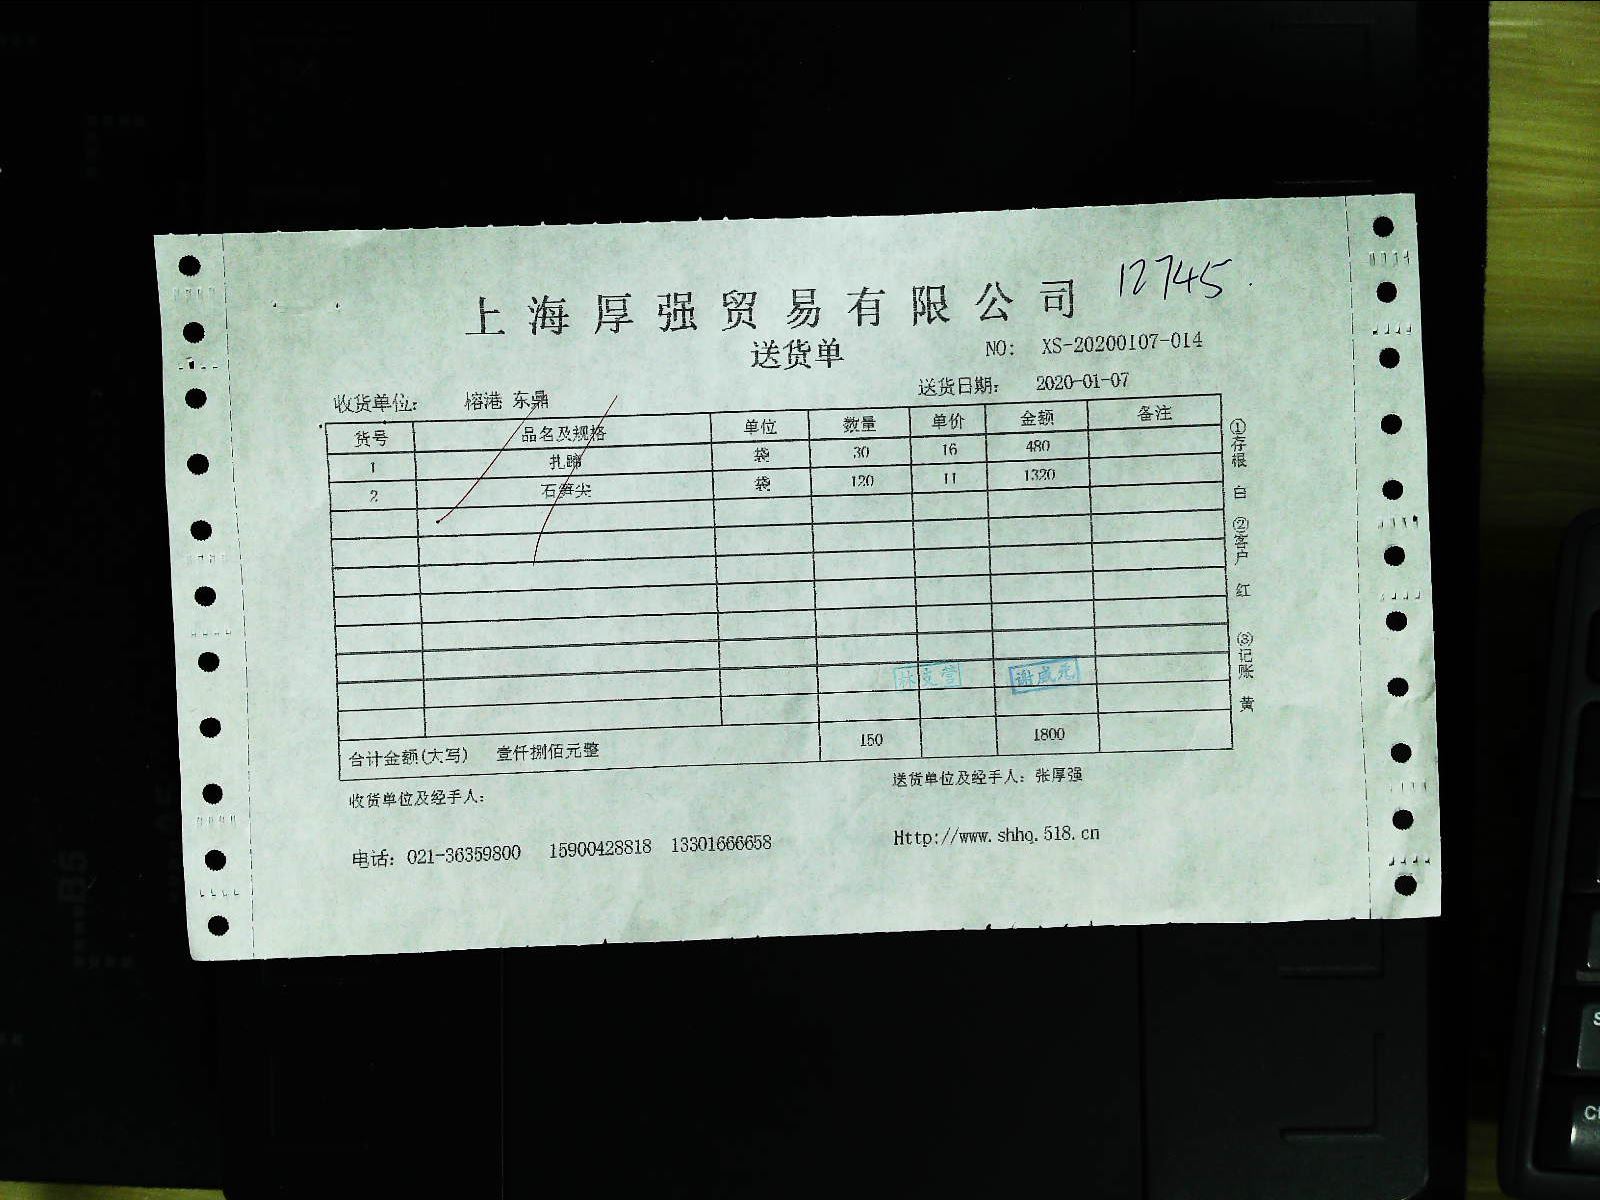 上海厚强贸易有限公司 12745
送货单
NO: XS-20200107-014
收货单位: 榕港 东鼎 送货日期: 2020-01-07
货号 品名及规格 单位 数量 单价 金额 备注
1 扎蹄 袋 30 16 480
2 石笋尖 袋 120 11 1320
谢咸元
合计金额(大写) 壹仟捌佰元整 150 1800
收货单位及经手人: 送货单位及经手人: 张厚强
电话: 021-36359800 15900428818 13301666658 Http://www.shhq.518.cn
①存根 白 ②客户 红 ③记账 黄